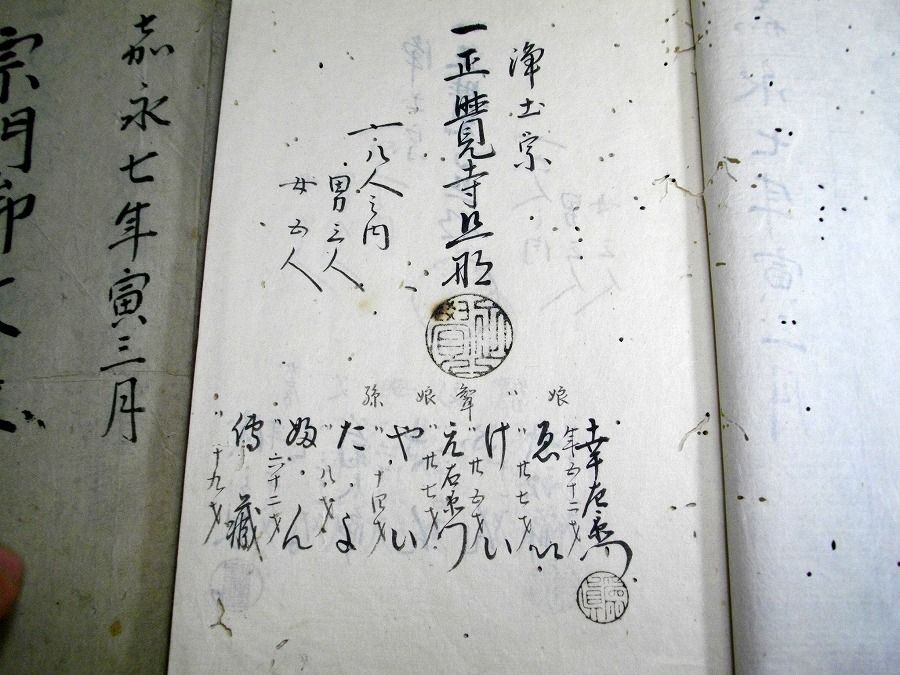 淨土宗
一正覺寺旦那
一八人之内
男三人
女五人
幸左衛門
年五十二才
娘 ゑい
〃廿七才
〃 けい
〃廿五才
聟 元右衛門
〃廿七才
娘 やい
〃十四才
孫 たよ
〃八才
婦ん
〃六十二才
傳藏
〃十九才
嘉永七年寅三月
宗門御